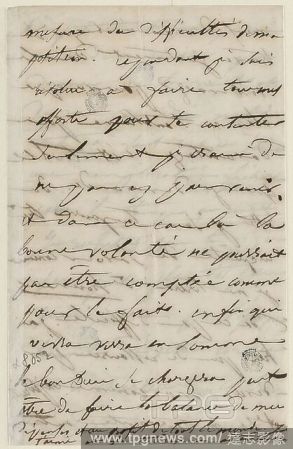 mesure des difficultés de ma
position. cependant je suis
résolue à faire tous mes
efforts pour te contenter
seulement je crains de
ne pouvoir y parvenir
et dans ce cas là la
bonne volonté ne pourrait
pas être comptée comme
pour le fait. enfin qui
vivra verra en somme
le bon Dieu se chargera peut
être de faire la balance de mes
au profit de tout le monde
T'aime
www.tpgnews.com 達志影像